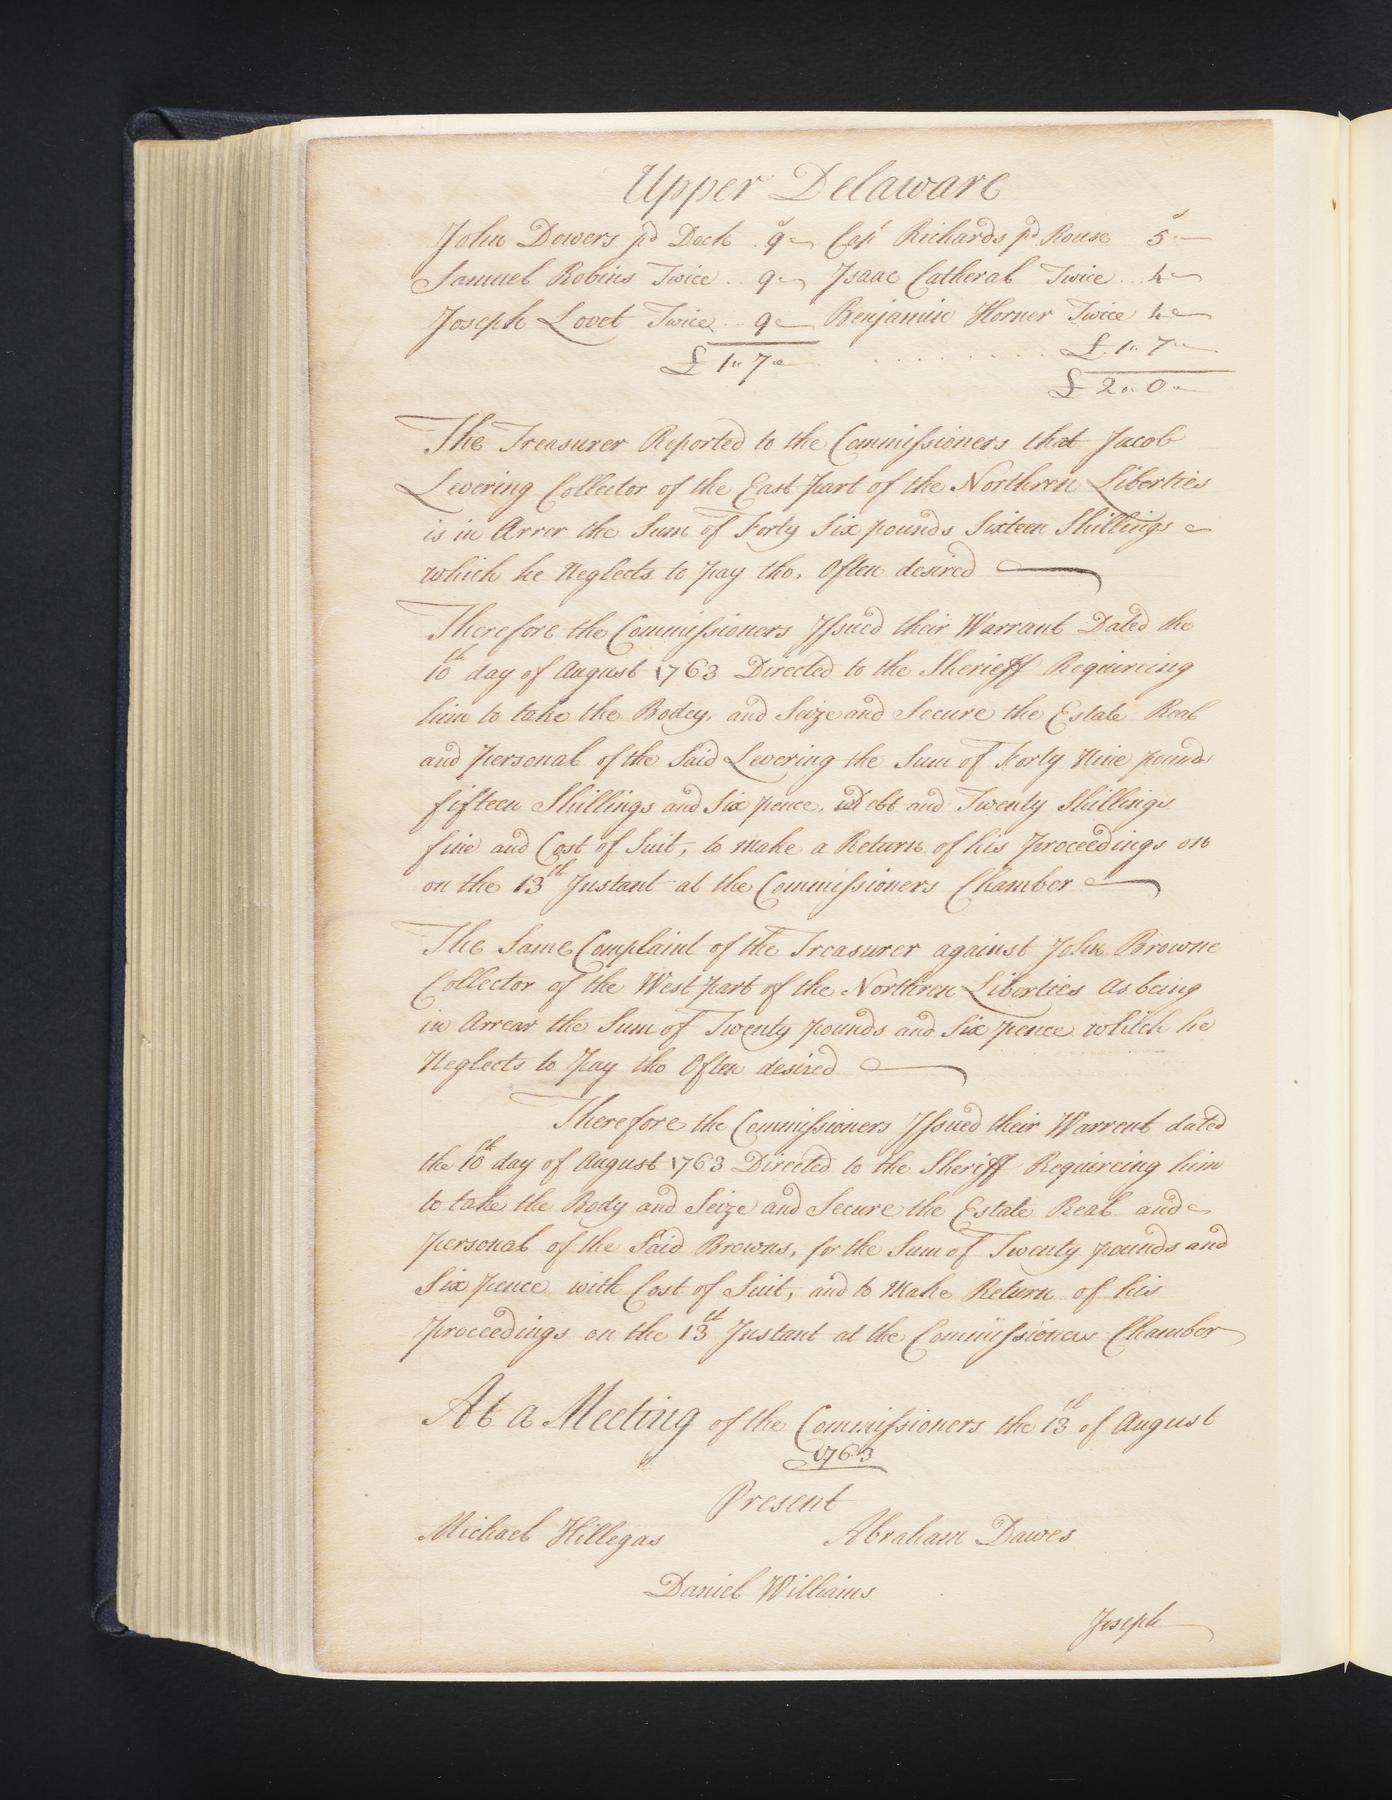 Upper Delaware
John Dowers pd Dock 9s Capt Richards pd Rouse 5s
Samuel Robins Twice .. 9 Isaac Catheral Twice .. 4
Joseph Lovet Twice .. 9 Benjamin Horner Twice 4
£ 1„ 7 . . . . . . . . . £. 1„ 7„
£ 2„ 0„
The Treasurer Reported to the Commissioners that Jacob
Levering Collector of the East part of the Northren Liberties
is in Arrer the Sum of Forty Six pounds Sixteen Shillings
which he Neglects to pay tho, Often desired
Therefore the Commissioners Issued their Warrant Dated the
10th day of August 1763 Directed to the Sherieff Requireing
him to take the Bodey, and Seize and Secure the Estate Real
and personal of the Said Levering the Sum of Forty Nine pounds
fifteen Shillings and Six pence, Debt and Twenty Shillings
fine and Cost of Suit, to Make a Return of his Proceedings on
on the 13th Instant at the Commissioners Chamber
The Same Complaint of the Treasurer against John Browne
Collector of the West part of the Northren Liberties As being
in Arrear the Sum of Twenty pounds and Six pence whitch he
Neglects to Pay tho Often desired
Therefore the Commissioners Issued their Warrent dated
the 10th day of August 1763 Directed to the Sheriff Requireing him
to take the Body and Seize and Secure the Estate Real and
personal of the Said Browns, for the Sum of Twenty pounds and
Six pence with Cost of Suit, and to Make Return of his
Proceedings on the 13th Instant at the Commissioners Chamber
At a Meeting of the Commissioners the 13th of August
1763
Present
Michael Hillegas Abraham Dawes
Daniel Williams
Joseph